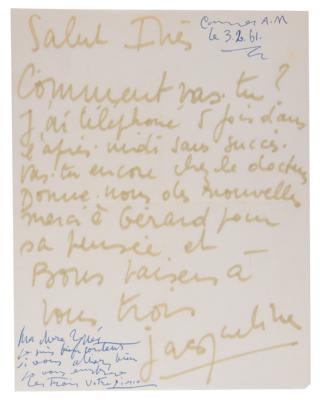 Cannes A.M
le 3.2.61.
Salut Inès
Comment vas-tu?
J'ai téléphoné 5 fois dans
l'après-midi sans succès.
vas-tu encore chez le docteur
Donne-nous des nouvelles
merci à Gérard pour
sa pensée et
Bons baisers à
vous trois
Jacqueline
Ma chère Inés
je suis bien content
si vous allez bien
je vous embrasse
les trois votre